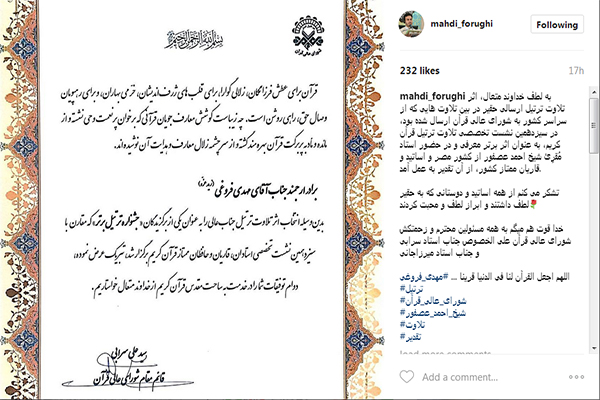 بسم الله الرحمن الرحیم
شورای عالی قرآن
قرآن برای عطش فرزانگان، زلالی گوارا؛ برای قلب های ژرف اندیشان، خرمی بهاران، و برای رهپویان
وصال حق، راهی روشن است. چه زیباست کوشش معارف جویان قرآنی که بر خوان پر نعمت وحی نشسته و از
مائده و مأدبه پربرکت قرآن بهره مند گشته و از سرچشمه زلال معارف و هدایت آن نوشیده اند.
برادر ارجمند جناب آقای مهدی فروغی (زید عزه)
بدین وسیله انتخاب اثر تلاوت ترتیل جناب عالی را به عنوان یکی از برگزیدگان «جشنواره ترتیل برتر» که مقارن با
سیزدهمین نشست تخصصی استادان، قاریان و حافظان ممتاز قرآن کریم برگزار شد، تبریک عرض نموده،
دوام توفیقات شما را در خدمت به ساحت مقدس قرآن کریم از خداوند متعال خواستاریم.
سید علی سرابی
قائم مقام شورای عالی قرآن
mahdi_forughi
Following
232 likes
17h
mahdi_forughi به لطف خداوند متعال، اثر
تلاوت ترتیل ارسالی حقیر در بین تلاوت هایی که از
سراسر کشور به شورای عالی قرآن ارسال شده بود،
در سیزدهمین نشست تخصصی تلاوت ترتیل قرآن
کریم، به عنوان اثر برتر معرفی و در حضور استاد
مُقریُ شیخ احمد عصفور از کشور مصر و اساتید و
قاریان ممتاز کشور، از آن تقدیر به عمل آمد.
تشکر می کنم از همه اساتید و دوستانی که به حقیر
لطف داشتند و ابراز لطف و محبت کردند🌹
خدا قوت هم میگم به همه مسئولین محترم و زحمتکش
شورای عالی قرآن علی الخصوص جناب استاد سرابی
و جناب استاد میرزاجانی
اللهم اجعل القرآن لنا فی الدنیا قرینا ... #مهدی_فروغی
#ترتیل
#شورای_عالی_قرآن
#شیخ_احمد_عصفور
#تلاوت
#تقدیر
load more comments
Add a comment...